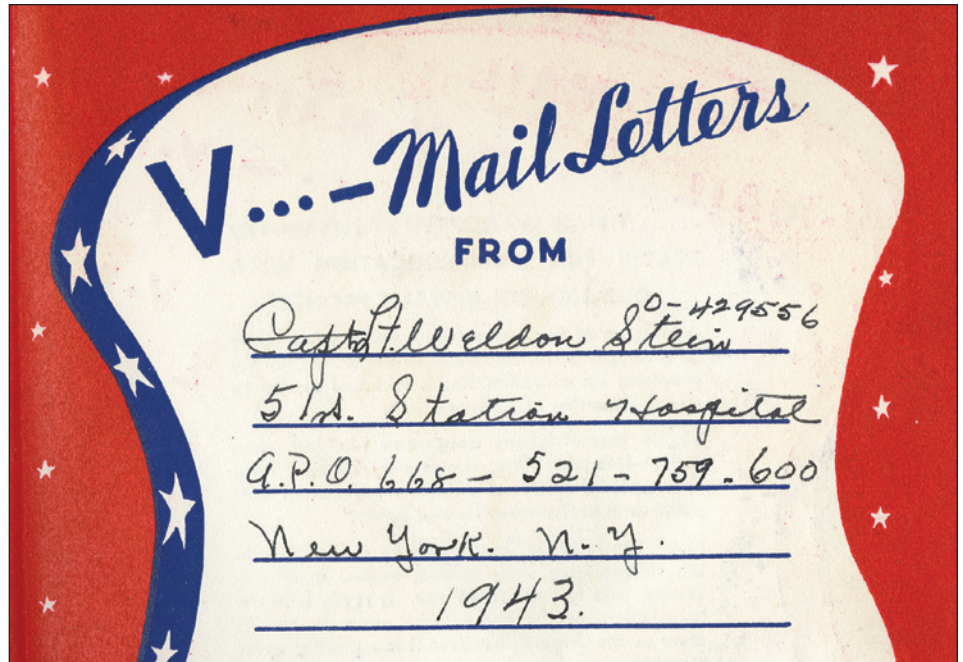 V...-Mail Letters
FROM
0-429556
Capt. H. Weldon Stein
51st. Station Hospital
A.P.O. 668 - 521 - 759 - 600
New York. N.Y.
1943.